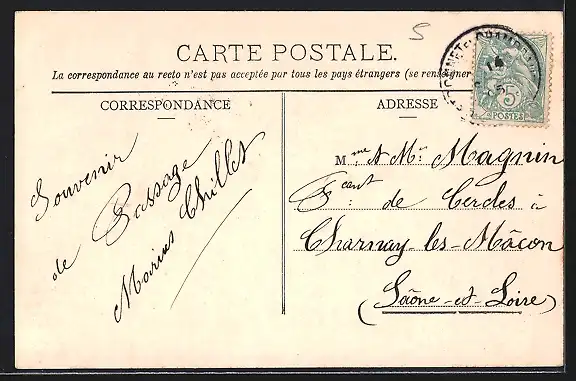 5
CARTE POSTALE.
La correspondance au recto n'est pas acceptée par tous les pays étrangers (se renseigner
CORRESPONDANCE
ADRESSE
Souvenir
de Passage
Marius Chillet
Mme & Mr Magnin
Fcant de Cercles à
Charnay les-Mâcon
(Saône-et-Loire)
5
POSTES